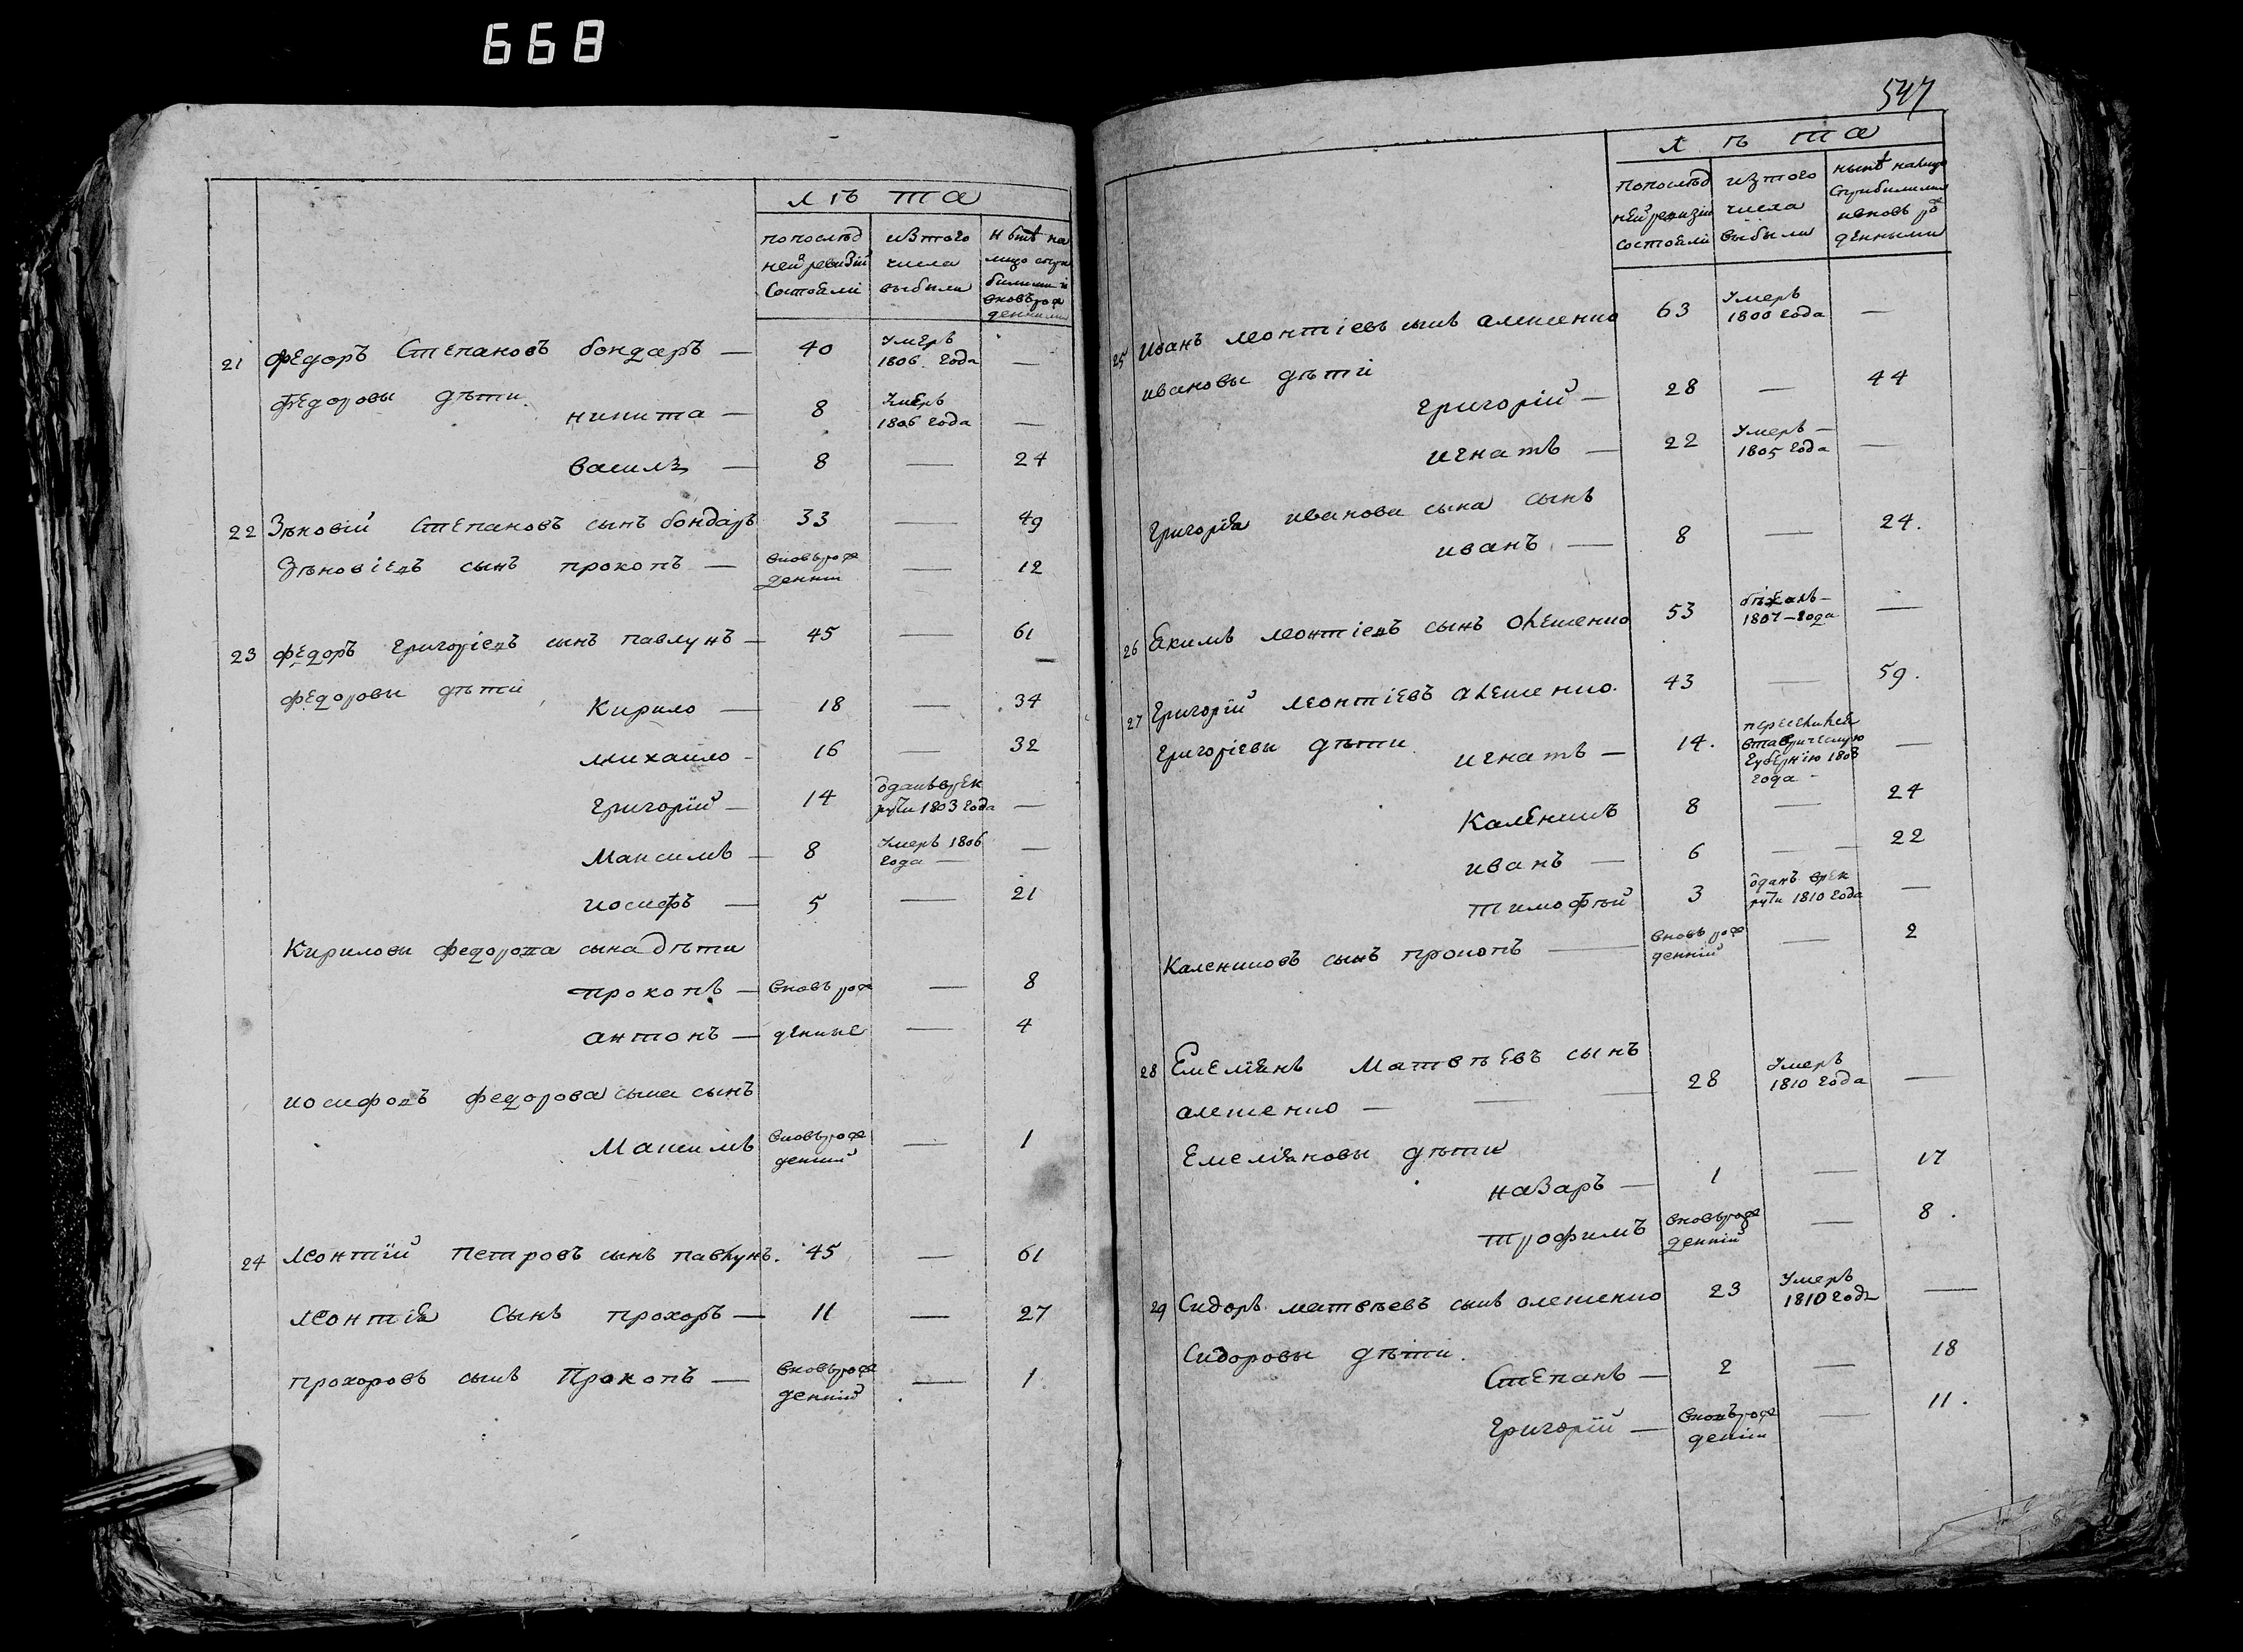 668
лѣта
попослѣд изтого нынѣ на
ней ревизіи числа лицо спри
Состояли выбыли былыми и
вновь рож
денными
21 федоръ Степановъ бондарь — 40 Умеръ 1806 года —
федоровы дѣти
никита — 8 Умеръ 1806 года —
василь — 8 — 24
22 Зѣновій Степановъ сынъ бондарь 33 — 49
Зѣновіевъ сынъ прокопъ — вновь рож денніи — 12
23 федоръ григоріевъ сынъ павлунъ — 45 — 61
федоровы дѣти
Кирило — 18 — 34
михайло — 16 — 32
григорій — 14 ѿданъ врек руты 1803 года —
Максимъ — 8 Умеръ 1806 года — —
иосифъ — 5 — 21
Кириловы федорова сына дѣти
прокопъ — вновь рож — 8
антонъ — денные — 4
иосифовъ федорова сына сынъ
Максимъ вновь рож денній — 1
24 леонтій петровъ сынъ павлунъ. 45 — 61
леонтія Сынъ прохоръ — 11 — 27
прохоровъ сынъ Прокопъ — вновь рож денній — 1
547
лѣта
попослѣд изтого нынѣ налицо
ней ревизіи числа сприбылыми
состояли выбыли ивновь рож
денными
25 иванъ леонтіевъ сынъ алешенко 63 Умеръ 1806 года —
ивановы дѣти
григорій — 28 — 44
игнатъ — 22 Умеръ — 1805 года —
григорія иванова сына сынъ
иванъ — 8 — 24.
26 Якимъ леонтіевъ сынъ Олешенко 53 бѣжалъ — 1807 — года —
27 григорій леонтіевъ алешенко. 43 — 59.
григоріевы дѣти
игнатъ — 14. переселился втаврическую губернію 1808 года — —
Каленикъ 8 — 24
иванъ — 6 — 22
тимофѣй 3 ѿданъ врек руты 1810 года —
Калениковъ сынъ прокопъ — вновь рож денній — 2
28 Емеліянъ Матвѣевъ сынъ
алешенко — — — 28 Умеръ 1810 года —
Емеліяновы дѣти
назаръ — 1 — 17
трофимъ вновь рож денній — 8.
29 Сидоръ матвѣевъ сынъ олешенко 23 Умеръ 1810 года —
Сидоровы дѣти.
Степанъ — 2 — 18
григорій — вновь рож деніи — 11.